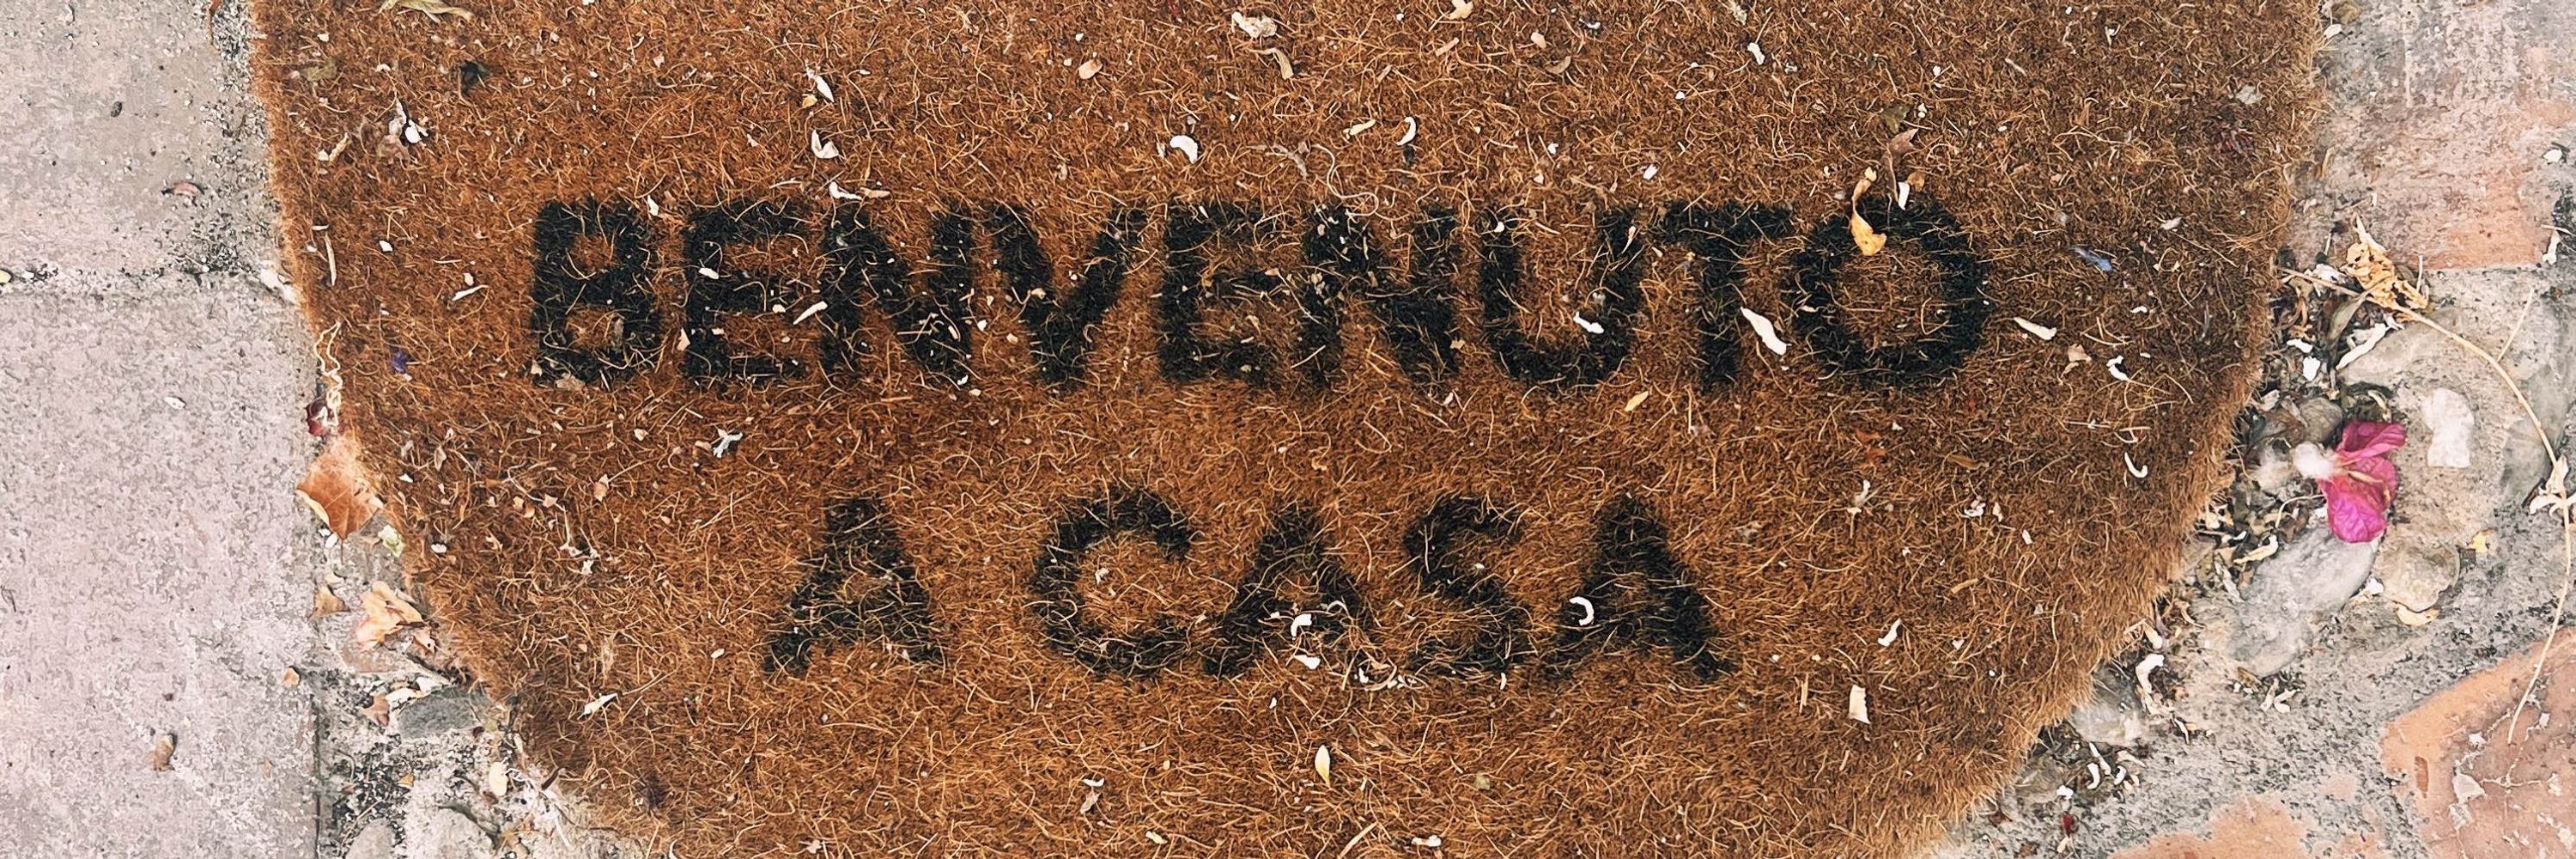 BENVENUTO
A CASA